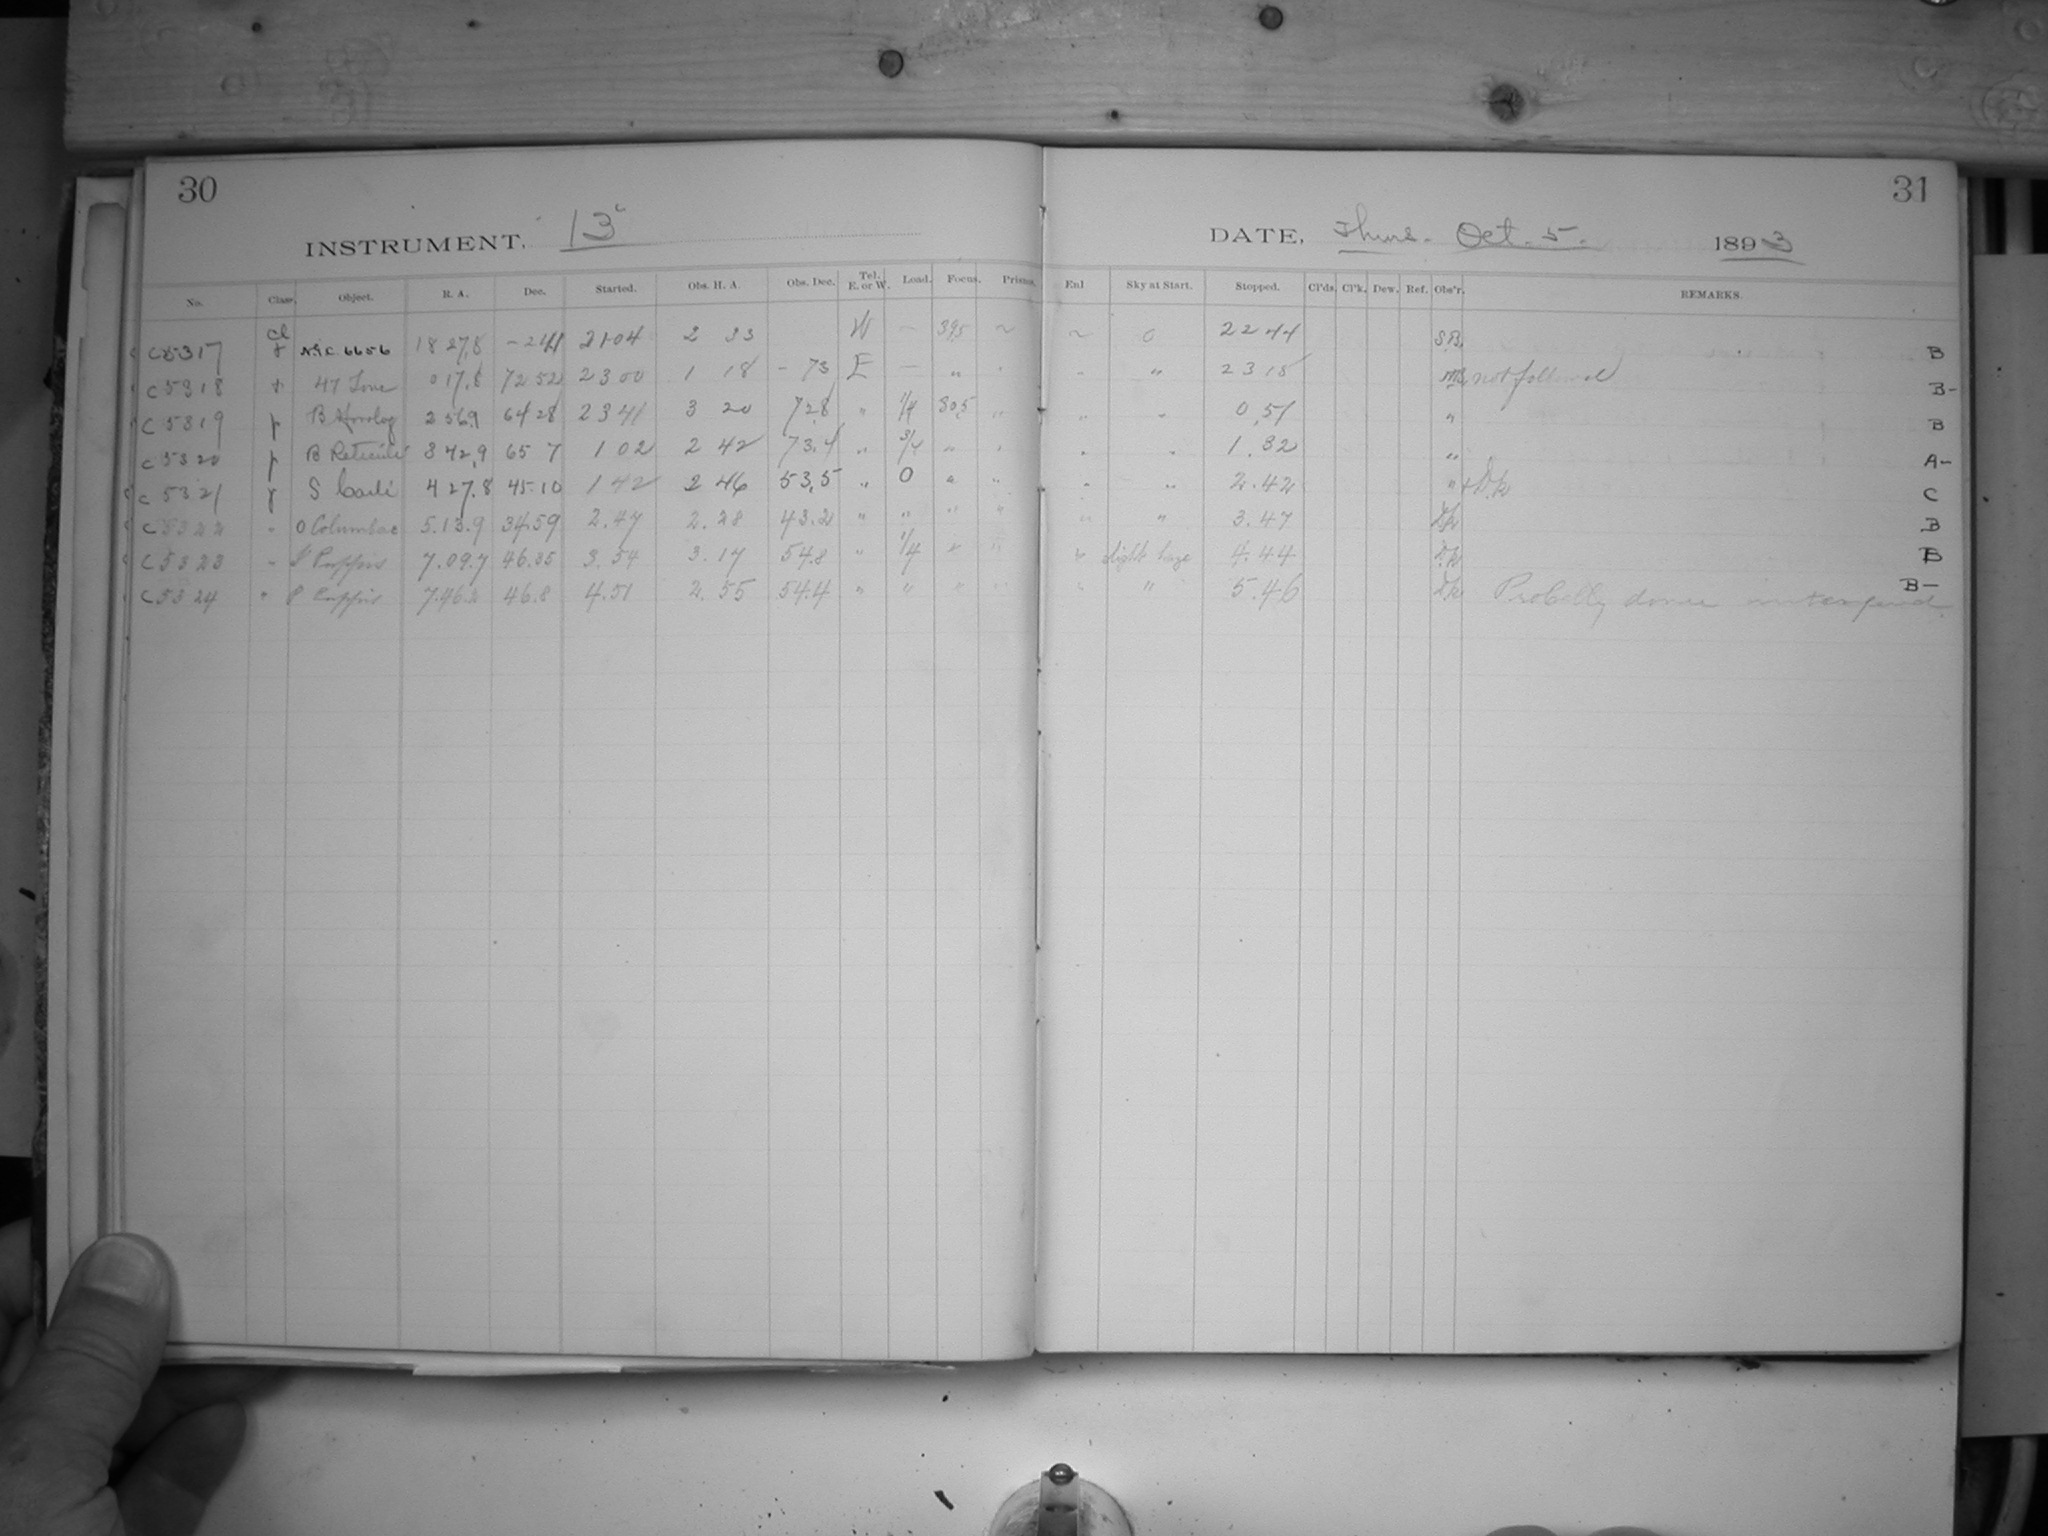 30
31
INSTRUMENT, 13"
DATE, Thurs. Oct. 5. 1893
No. Class. Object. R. A. Dec. Started. Obs. H. A. Obs. Dec. Tel. E. or W. Load. Focus. Prisms. Enl Sky at Start. Stopped. Cl'ds. Cl'k. Dew. Ref. Obs'r. REMARKS.
C5317 Cl N.G.C. 6656 18 27,8 -24,1 21 04 2 33 W — 39,5 ~ ~ 0 22 44 S.B. B
C5318 " 47 0 17,8 72 52 23 00 1 18 - 73 E — " " " " 23 18 not followed B-
C5319 B Horolog 2 56,9 64 28 23 41 3 20 72,8 " 1/4 30,5 " " " 0,51 " B
C5320 B Reticuli 3 42,9 65 7 1 02 2 42 73,4 " 3/4 " " " " 1.32 " A-
C5321 S Caeli 4 27,8 45.10 1 42 2 46 53,5 " 0 " " " " 2.42 " C
C5322 " O Columbae 5.13.9 34.59 2.47 2.28 43.2 " " " " " " 3.47 B
C5323 " Puppis 7.09.7 46.35 3.54 3.17 54.8 " 1/4 " " " slight haze 4.44 B
C5324 " P Puppis 7.46.2 46.8 4.51 2.55 54.4 " " " " " " 5.46 Probably B-